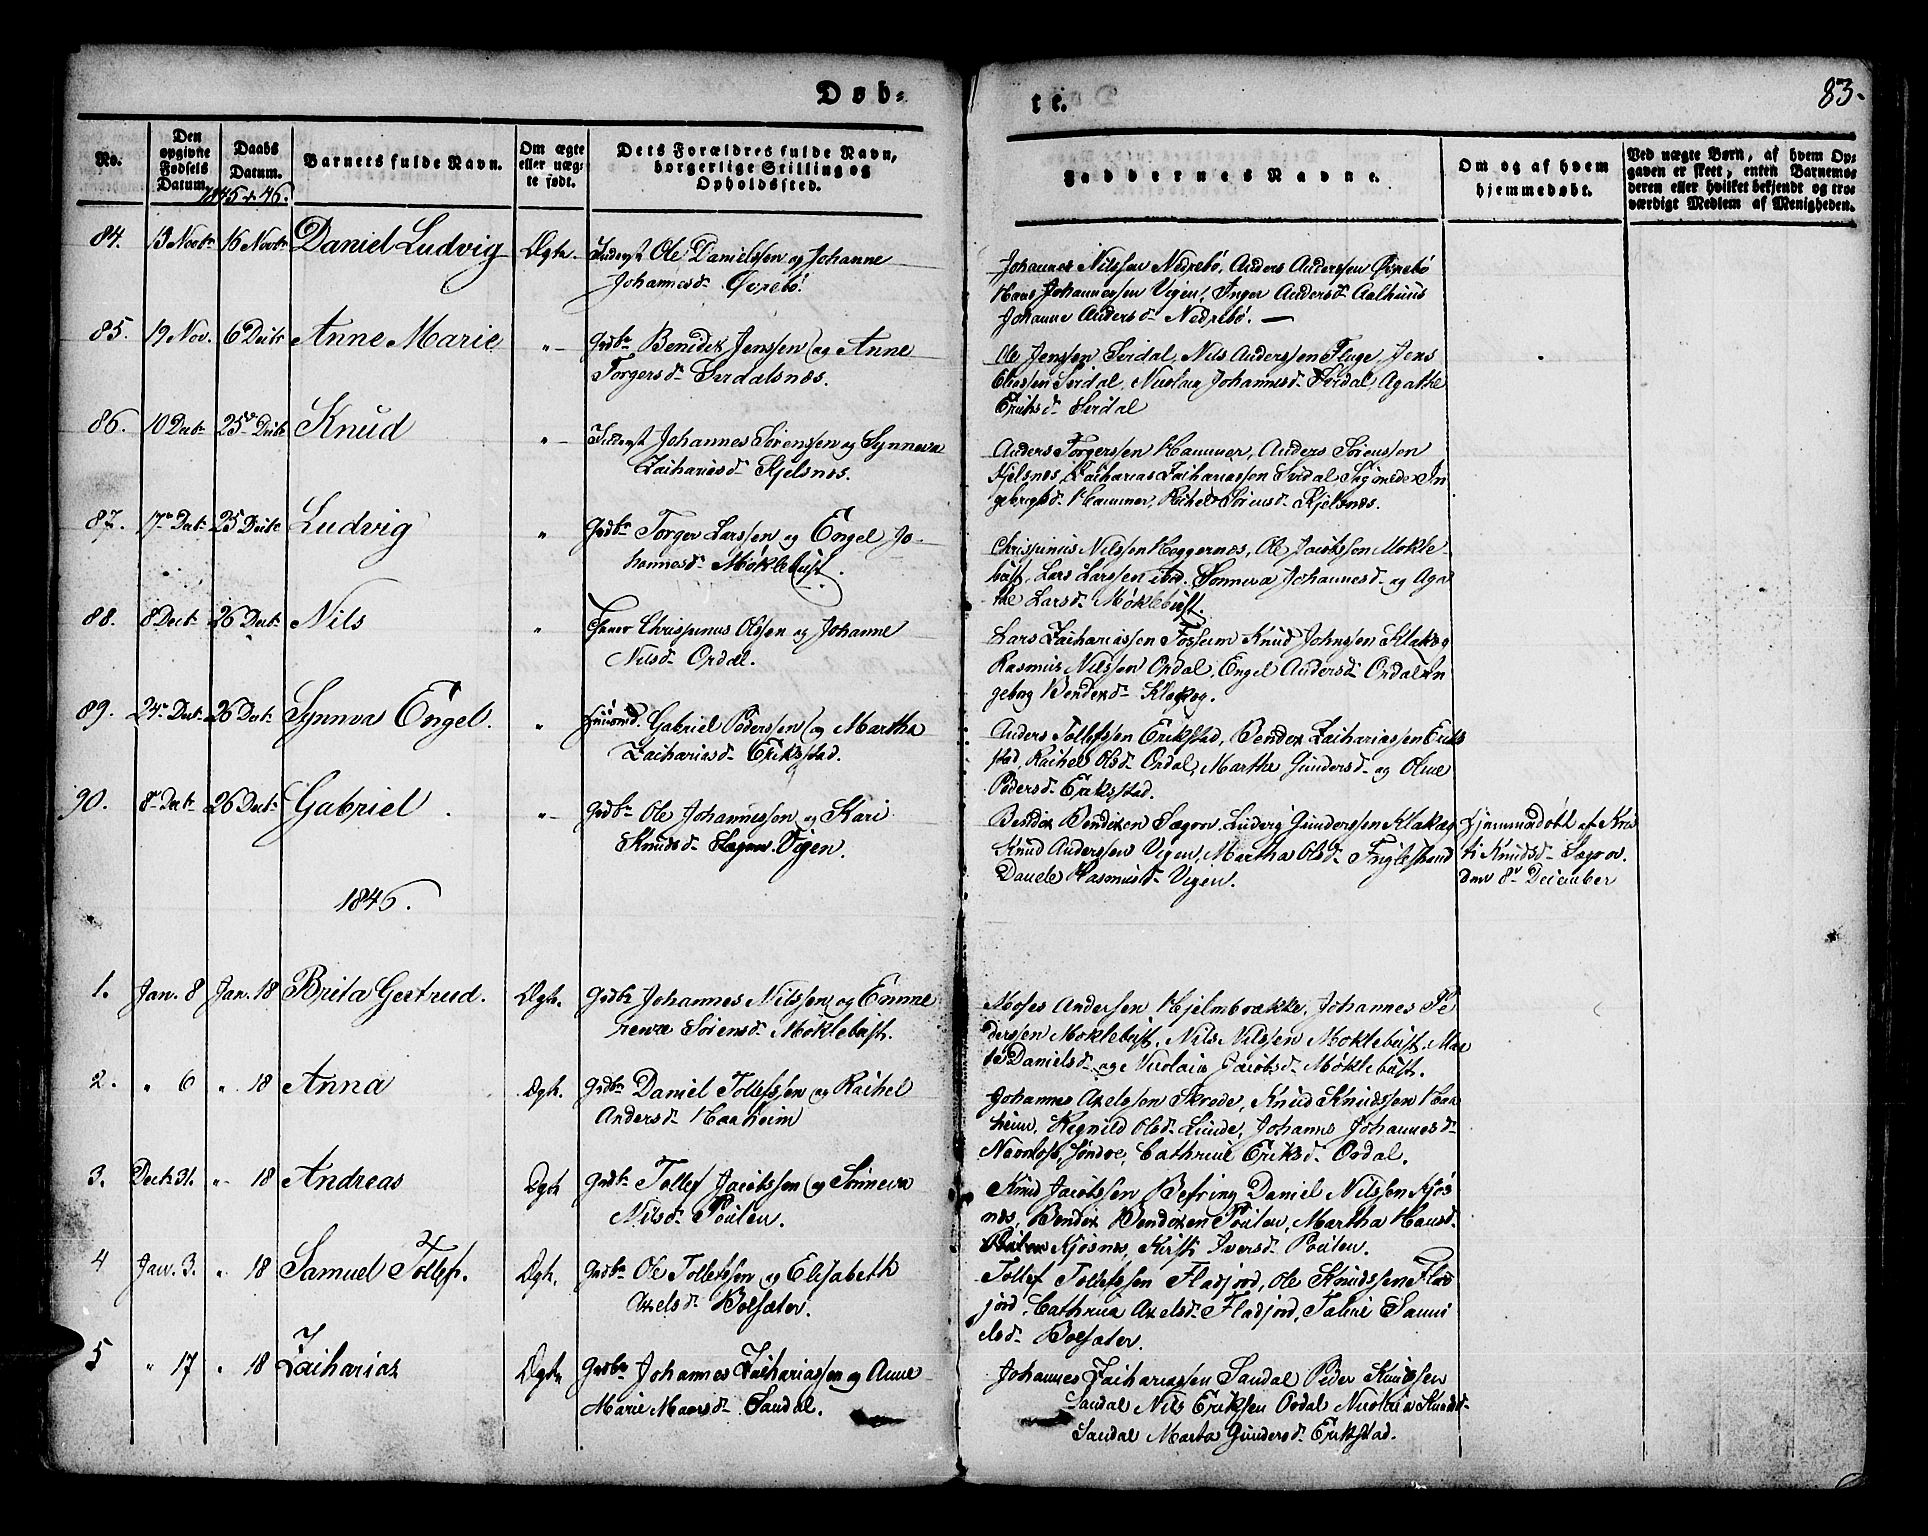 Døb-
te.
83.
No.
Den opgivne Fødsels Datum.
Daabs Datum.
1845 & 46.
Barnets fulde Navn.
Om ægte eller uægte født.
Dets Forældres fulde Navn, borgerlige Stilling og Opholdssted.
Faddernes Navne.
Om og af hvem hjemmedøbt.
Ved uægte Børn, af hvem Opgaven er skeet, enten Barnemoderen eller hvilket bekjendt og troværdigt Medlem af Menigheden.
84. 13 Novbr 16 Novbr Daniel Ludvig Ægte. Ole Danielssen og Johanne
Johannesd. Øvrebø.
Johannes Nilssen Nedrebø, Anders Anderssen Øvrebø
Hans Johannessen Vigen, Inger Andersd. Aalhuus
Johanne Andersd. Nedrebø. —
85. 19 Nov. 6 Decbr Anne Marie "- Grdbr Bendix Jenssen og Anne
Torgersd. Serdalsnæs.
Ole Jenssen Serdal, Nils Anderssen Fluge, Jens
Eliassen Serdal, Nicolava Johannesd. Serdal Agathe
Eriksd. Serdal
86. 10 Decbr 25 Decbr Knud "- Johannes Sørenssen og Synneva
Zachariasd. Kjelsnes.
Anders Torgerssen Hammer, Anders Sørenssen
Kjelsnes, Zacharias Zachariassen Serdal, In
gebrigtsd. Hammer, Rachel Sørensd. Kjelsnes.
87. 17 Decbr 25 Decbr Ludvig " Grdbr Torger Larssen og Engel Jo-
hannesd. Møklebust.
Chrispinus Nilssen Heggernæs, Ole Jacobssen Møkle-
bust, Lars Larssen ibid. Sønneva Johannesd. og Aga
the Larsd. Møklebust.
88. 8 Decbr 26 Decbr Nils " Chrispinus Olssen og Johanne
Nilsd. Ordal.
Lars Zachariassen Fossum Knud Johnssen Klakeg
Rasmus Nilssen Ordal, Engel Andersd. Ordal In
geborg Bendixd. Klakeg.
89. 24 Decbr 26 Decbr Synnva Engel. " Gabriel Pederssen og Martha
Zachariasd. Erikstad.
Anders Tollefssen Erikstad, Bendix Zachariassen Erik
stad, Rachel Olsd. Ordal, Marthe Gundersd. og Oline
Pedersd. Erikstad.
90. 8 Decbr 26 Decbr Gabriel "- Grdbr Ole Johannessen og Kari
Knudsd. Vigen.
Bendix Bendixen Sægrov Ludvig Gunderssen Klakeg
Knud Anderssen Vigen, Martha Olsd.
Rasmusd. Vigen.
Hjemmedøbt af Kris
ti Knudsd. Sægrov.
den 8 December
1846.
1. Jan. 8 Jan. 18 Brita Gertrud. Ægte. Grdbr Johannes Nilssen og Emme
renze Sørensd. Møklebust.
Moses Andersen Hjelmbrække, Johannes Pe
derssen Møklebust, Nils Nilssen Møklebust, Mar
te Danielsd. og Nicolava Jacobsd. Møklebust.
2. " 6 " 18 Anna Ægte. Grdbr Daniel Tollefssen og Rachel
Andersd. Haaheim
Johannes Axelssen Skrøde, Knud Knudssen Haa
heim, Regnild Olsd. Lunde, Johanne Johannesd.
Cathrine Eriksd. Ordal.
3. Decbr 31. " 18 Andreas Ægte Grdbr Tollef Jacobssen og Sønneva
Nilsd. Pollen.
Knud Jacobssen Befring Daniel Nilssen Kjøs
nes, Bendix Bendixen Pollen, Martha Hansd.
Kjøsnes, Kirsti Iversd. Pollen.
4 Jan. 3. " 18 Samuel Tollef. Ægte. Grdbr Ole Tollefssen og Elisabeth
Axelsd. Bolsæter.
Tollef Tollefssen Fladjord, Ole Knudssen Flad
jord, Cathrina Axelsd. Fladjord, Samu
elsd. Bolsæter.
5 " 17 " 18 Zacharias Ægte Grdbr Johannes Zachariassen og Anne
Marie Madsd. Sandal.
Johannes Zachariassen Sandal Peder Knudssen
Sandal Nils Erikssen Ordal Nicolava Knudsd.
Sandal Marta Gundersd. Erikstad.